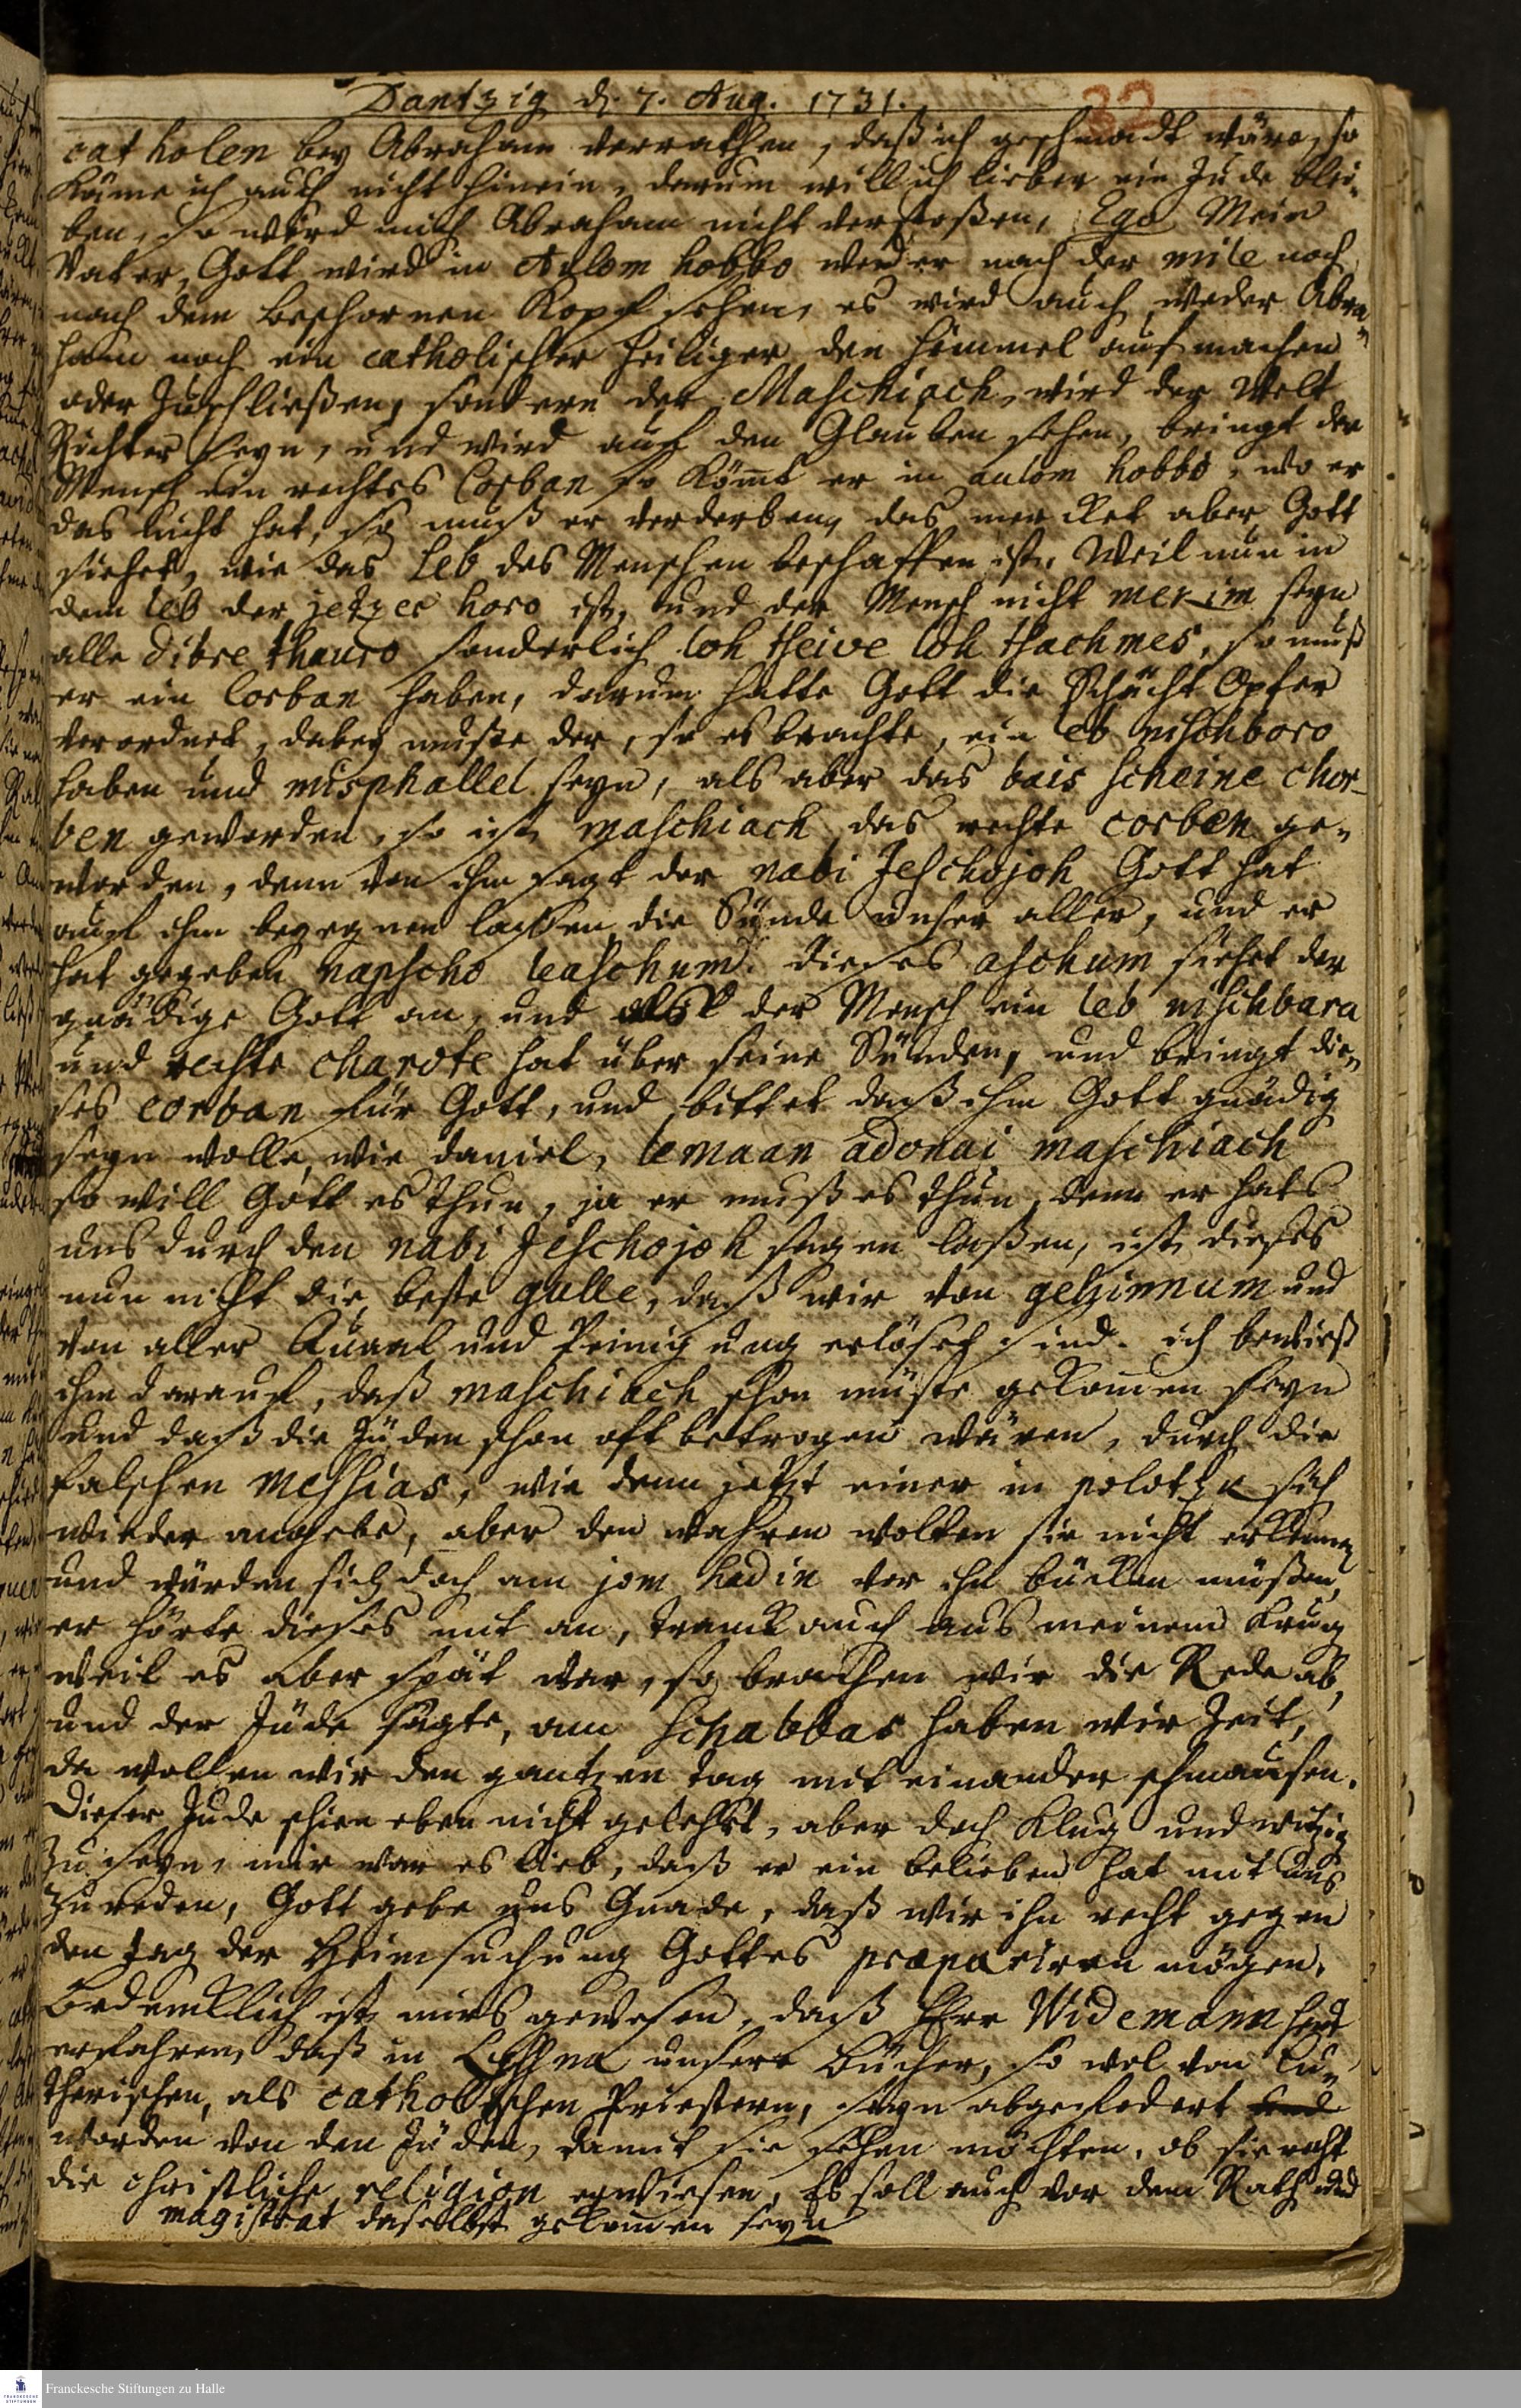 Dantzig d. 7. Aug. 1731.
32
catholen bey Abraham verrathen, daß ich geschmadt wäre, so
käme ich auch nicht hinein, darum will ich lieber ein Jude blei-
ben, so wird mich Abraham nicht verstoßen, Ego Mein
Vater, Gott wird in Aulom hobbo weder nach der mile noch
nach dem beschornen Kopf sehen, es wird auch weder Abra-
ham noch ein catholischer Heiliger den Himmel aufmachen
oder zuschließen, sondern der Maschiach wird der Welt
Richter seyn, und wird auf den Glauben sehen, bringt der
Mensch ein rechtes Corban so kömt er in aulom hobbo, wo er
das nicht hat, so muß er verderben, das mercket aber Gott
siehet, wie das Leb des Menschen beschaffen ist. Weil nun in
dem leb der jetzer horo ist, und der Mensch nicht mekim seyn
alle dibre thauro sonderlich loh theive loh thachmes, so muß
er ein Corban haben, darum hatte Gott die Schächt Opfer
verordnet, dabey muste der, so es brachte, ein leb nischboro
haben und misphallel seyn, als aber das bais scheine chor-
ben geworden, so ist maschiach das rechte corben ge-
worden, denn von ihm sagt der nabi Jeschojoh Gott hat
auf ihm begegnen laßen die Sünde unser aller, und er
hat gegeben napscho leaschum. dieses aschum siehet der
gnädige Gott an, und der Mensch ein leb nischbara
und rechte charote hat über seine Sünden, und bringt die-
ses corban für Gott, und bittet daß ihm Gott gnädig
seyn wolle, wie daniel, lemaan adonai maschiach
so will Gott es thun, ja er muß es thun, denn er hats
uns durch den nabi Jeschojoh sagen laßen, ist dieses
nun nicht die beste gulle, daß wir von gehinnum und
von aller Quaal und Peinigung erlöset sind. ich bewieß
ihm darauf, daß maschiach schon müste gekommen seyn
und daß die Jüden schon oft betrogen wären, durch die
falschen Messias, wie denn jetzt einer in polotzk sich
wieder angebe, aber den wahren wolten sie nicht erkennen
und würden sich doch am jom hadin vor ihn bücken müßen,
er hörte dieses mit an, tranck auch aus meinem Krug
weil es aber spät war, so brachen wir die Rede ab,
und der Jude sagte, am schabbas haben wir Zeit,
da wollen wir den gantzen tag mit einander schmausen.
Dieser Jude schien eben nicht gelehrt, aber doch klug und witzig
zu seyn, mir war es lieb, daß er ein belieben hat mit uns
zu reden, Gott gebe uns Gnade, daß wir ihn recht gegen
den tag der Heimsuchung Gottes præpariren mögen.
Bedencklich ist mirs gewesen, daß Herr Widemann hat
erfahren, daß in Lissna unsere Bücher, so wol von Lu-
therischen, als catholischen Priestern, seyn abgefodert
worden von den Jüden, damit sie sehen möchten, ob sie recht
die christliche religion erwiesen, Es soll auch vor dem Rath und
magistrat daselbst gekommen seyn
Franckesche Stiftungen zu Halle